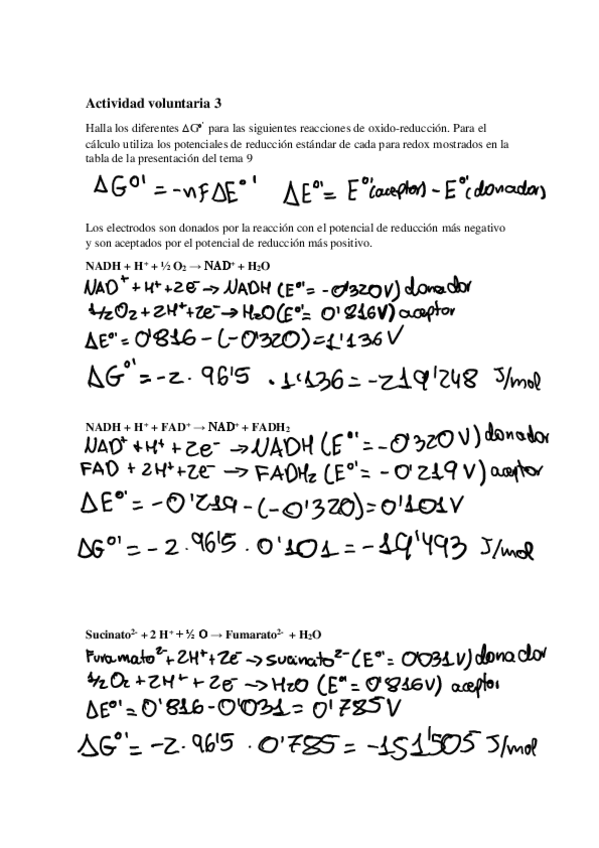 Actividad voluntaria 3
Halla los diferentes ΔG°' para las siguientes reacciones de oxido-reducción. Para el
cálculo utiliza los potenciales de reducción estándar de cada para redox mostrados en la
tabla de la presentación del tema 9
ΔG°' = -nFΔE°' ΔE°' = E°'(aceptor) - E°'(donador)
Los electrodos son donados por la reacción con el potencial de reducción más negativo
y son aceptados por el potencial de reducción más positivo.
NADH + H⁺ + ½ O₂ → NAD⁺ + H₂O
NAD⁺ + H⁺ + 2e⁻ → NADH (E°' = -0'320V) donador
1/2 O₂ + 2H⁺ + 2e⁻ → H₂O (E°' = 0'816V) aceptor
ΔE°' = 0'816 - (-0'320) = 1'136V
ΔG°' = -2 · 96'5 · 1'136 = -219'248 J/mol
NADH + H⁺ + FAD⁺ → NAD⁺ + FADH₂
NAD⁺ + H⁺ + 2e⁻ → NADH (E°' = -0'320V) donador
FAD + 2H⁺ + 2e⁻ → FADH₂ (E°' = -0'219V) aceptor
ΔE°' = -0'219 - (-0'320) = 0'101V
ΔG°' = -2 · 96'5 · 0'101 = -19'493 J/mol
Sucinato²⁻ + 2 H⁺ + ½ O → Fumarato²⁻ + H₂O
Furamato²⁻ + 2H⁺ + 2e⁻ → sucinato²⁻ (E°' = 0'031V) donador
1/2 O₂ + 2H⁺ + 2e⁻ → H₂O (E°' = 0'816V) aceptor
ΔE°' = 0'816 - 0'031 = 0'785V
ΔG°' = -2 · 96'5 · 0'785 = -151'505 J/mol